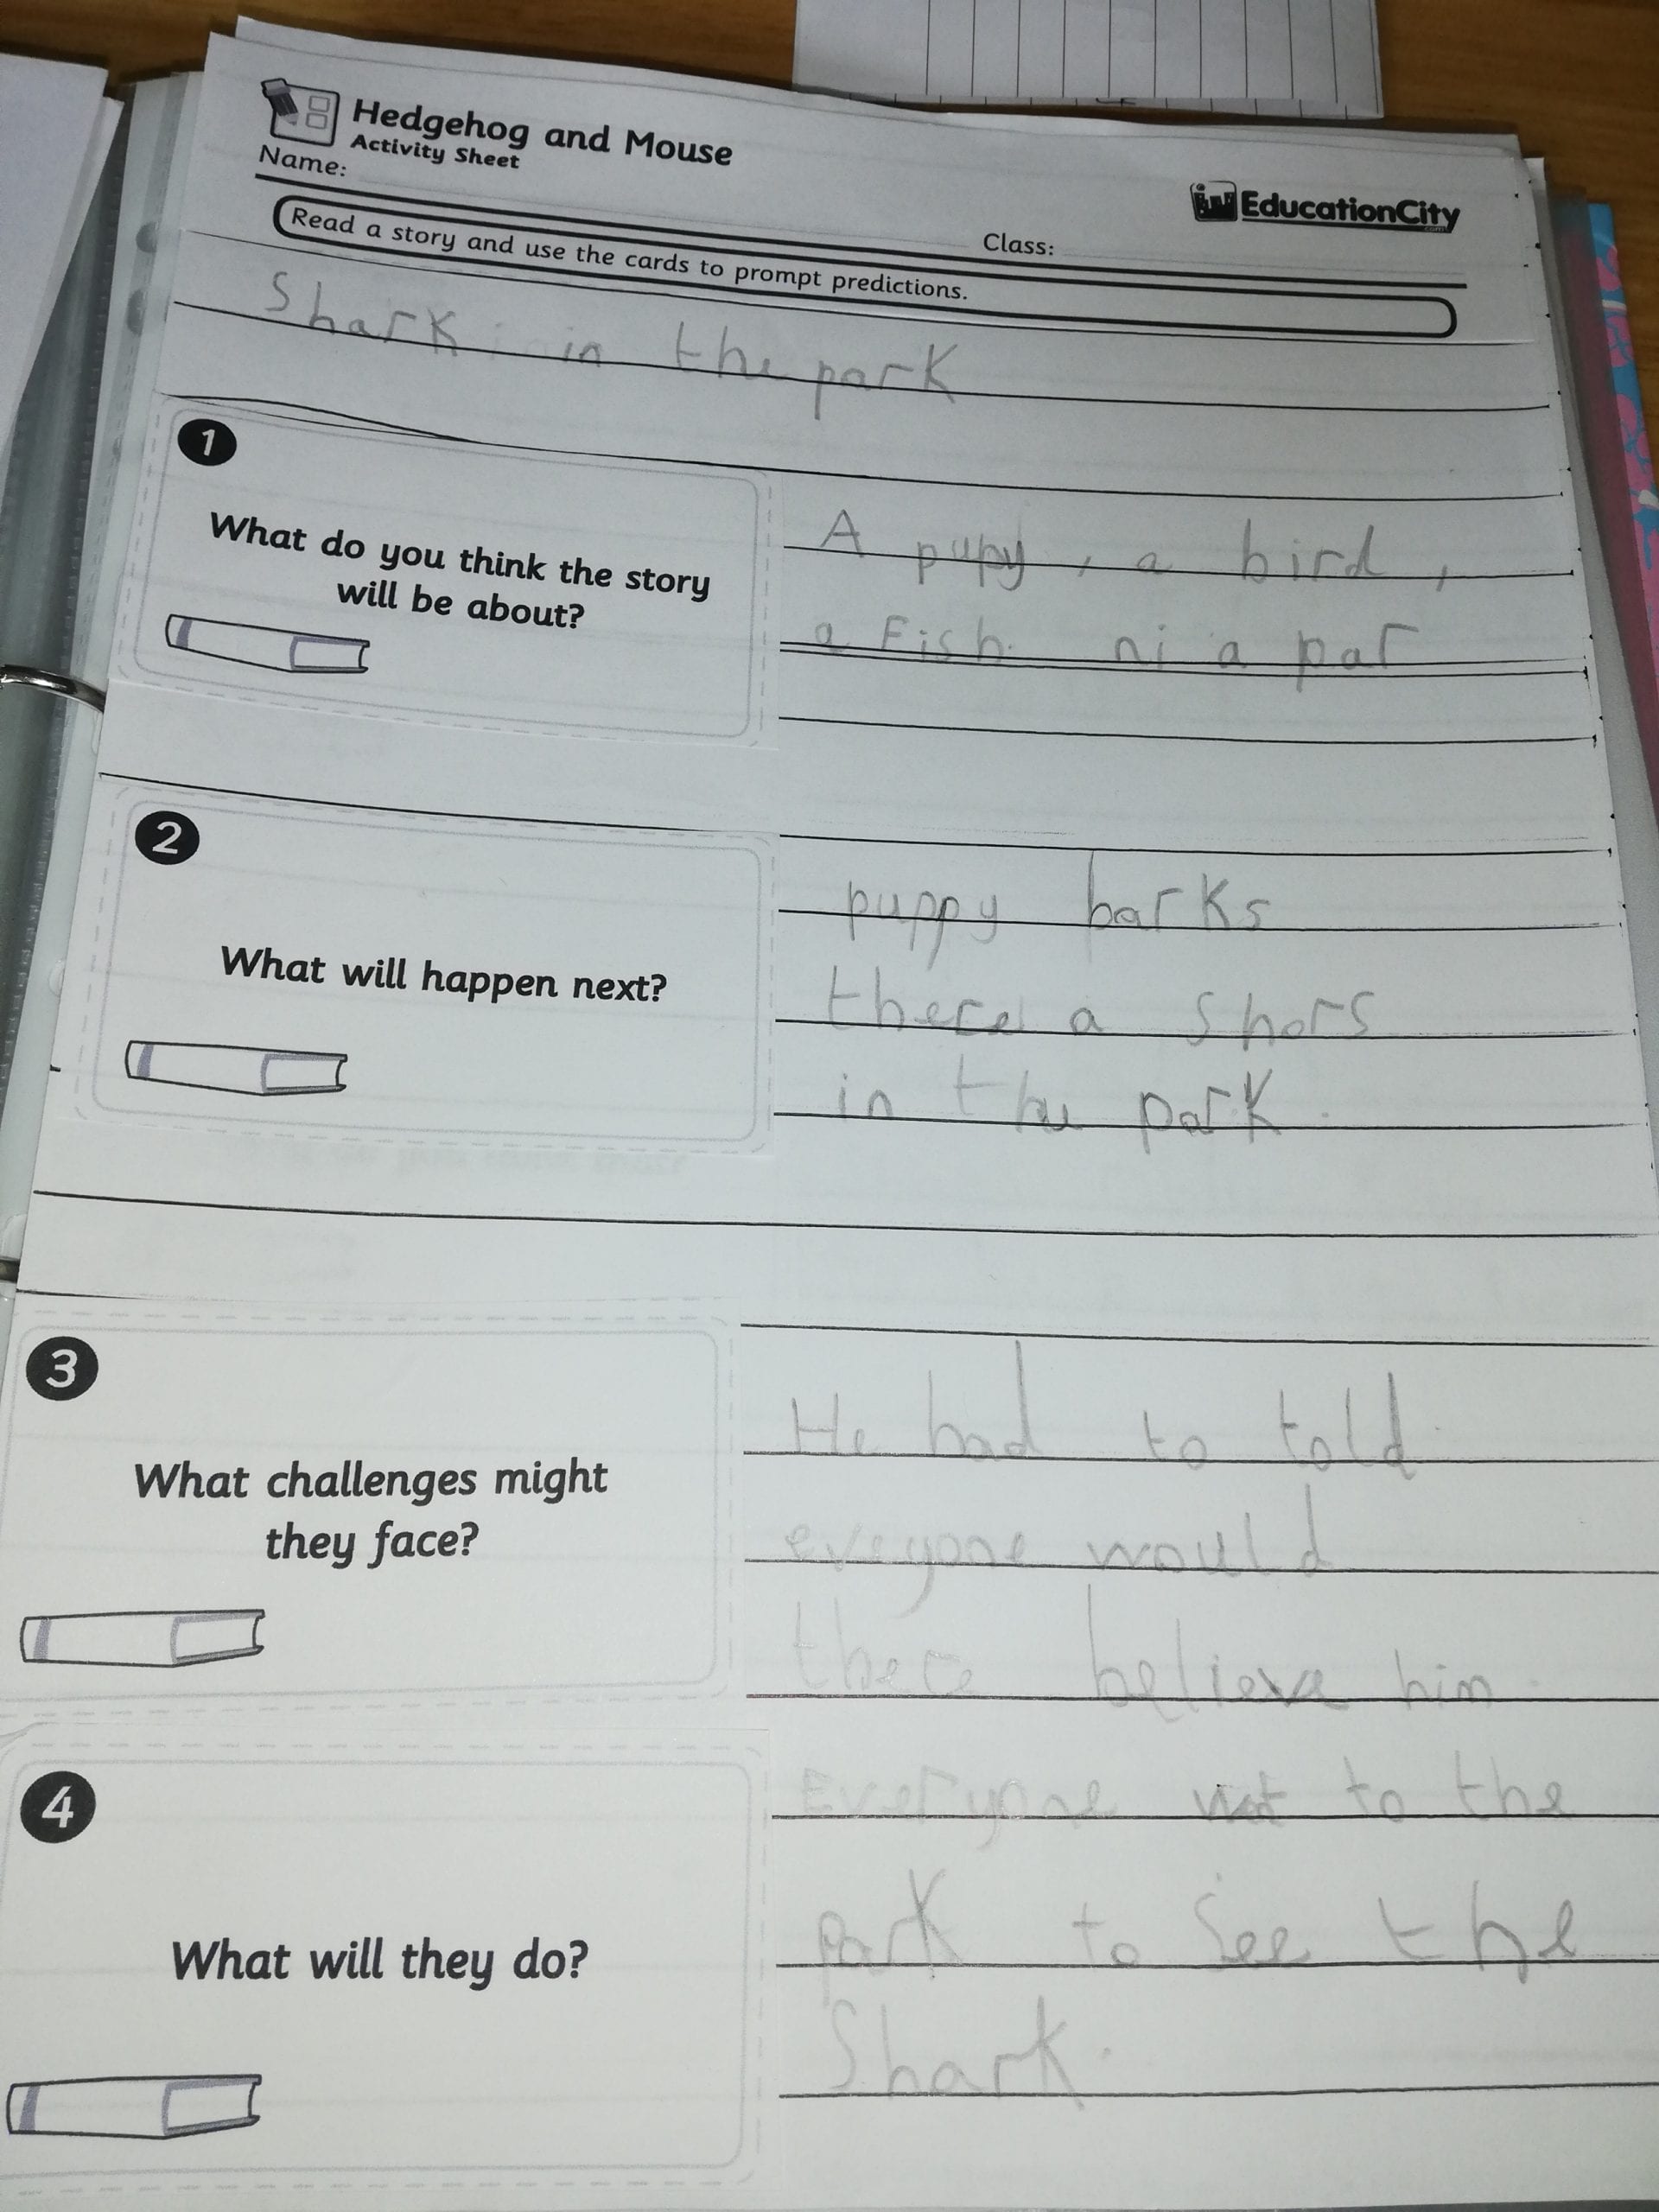 Hedgehog and Mouse
Activity Sheet
Name:
EducationCity
.com
Class:
Read a story and use the cards to prompt predictions.
Shark in the park
1
What do you think the story
will be about?
A pupy, a bird,
a Fish. ni a par
2
What will happen next?
puppy barks
there a shors
in the park.
3
What challenges might
they face?
He had to told
eveyone would
there believe him.
4
What will they do?
Everyone wat to the
park to See the
Shark.